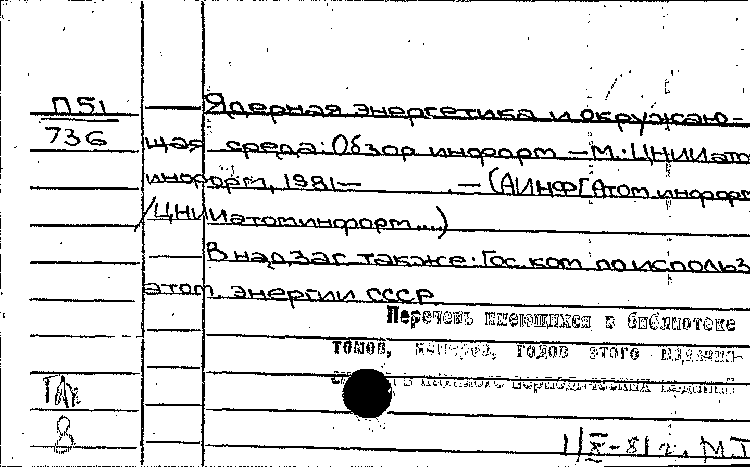 П51
736
Ядерная энергетика и окружаю-
щая среда: Обзор информ – М.: ЦНИИато
информ, 1981– – (АИНФ [Атом. информ
/ЦНИИатоминформ...)
В надзаг также: Гос. ком. по использ
атом. энергии СССР.
Перечень имеющихся в библиотеке
томов, номеров, годов этого издания
периодических изданий
8
1/X-81 г. М.Т